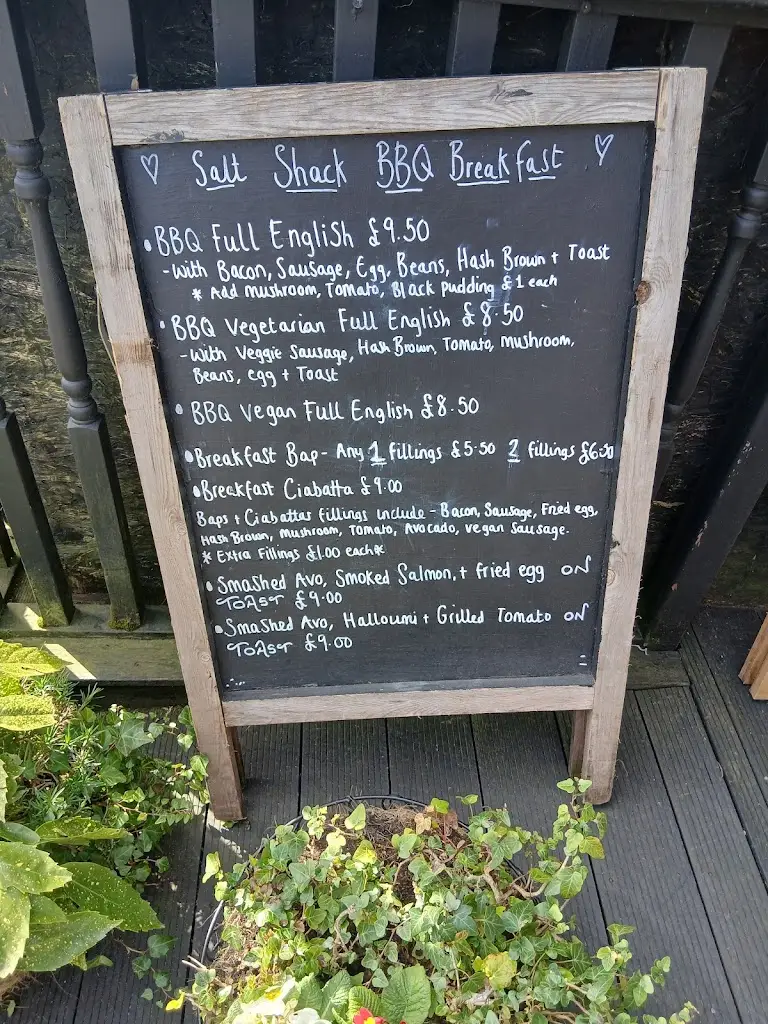 ♡ Salt Shack BBQ Breakfast ♡
• BBQ Full English £9.50
- With Bacon, Sausage, Egg, Beans, Hash Brown + Toast
* Add mushroom, Tomato, Black pudding £1 each
• BBQ Vegetarian Full English £8.50
- With Veggie Sausage, Hash Brown, Tomato, Mushroom,
Beans, egg + Toast
• BBQ Vegan Full English £8.50
• Breakfast Bap - Any 1 fillings £5.50 2 fillings £6.50
• Breakfast Ciabatta £9.00
Baps + Ciabattas fillings include - Bacon, Sausage, Fried egg,
Hash Brown, Mushroom, Tomato, Avocado, vegan Sausage.
* Extra Fillings £1.00 each *
• Smashed Avo, Smoked Salmon, + fried egg ON
TOAST £9.00
• Smashed Avo, Halloumi + Grilled Tomato ON
TOAST £9.00